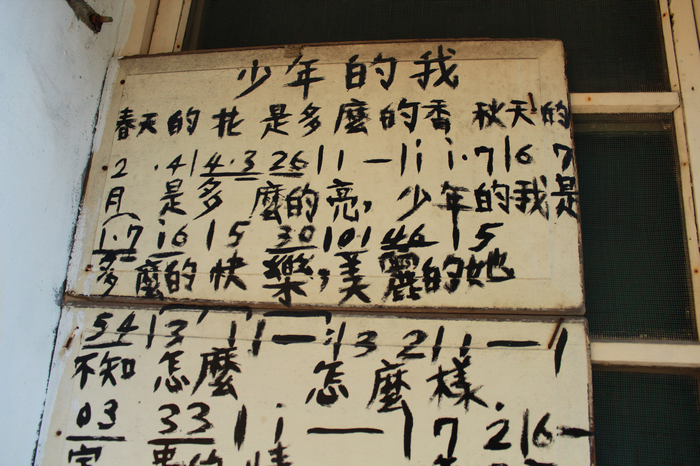 少年的我
春天的花 是多麼的香 秋天的
2 .4|4.3 26|1 1 — |1 i i.7|6 7
月 是多 麼的亮, 少年的我是
1.7 i6 | 5 30|101 46 | 5
多麼的快 樂,美麗的她
54|3 1|1—|3 2|1 1 —|
不知 怎麼 怎麼樣.
03 33 | i — | 7 2|6 —